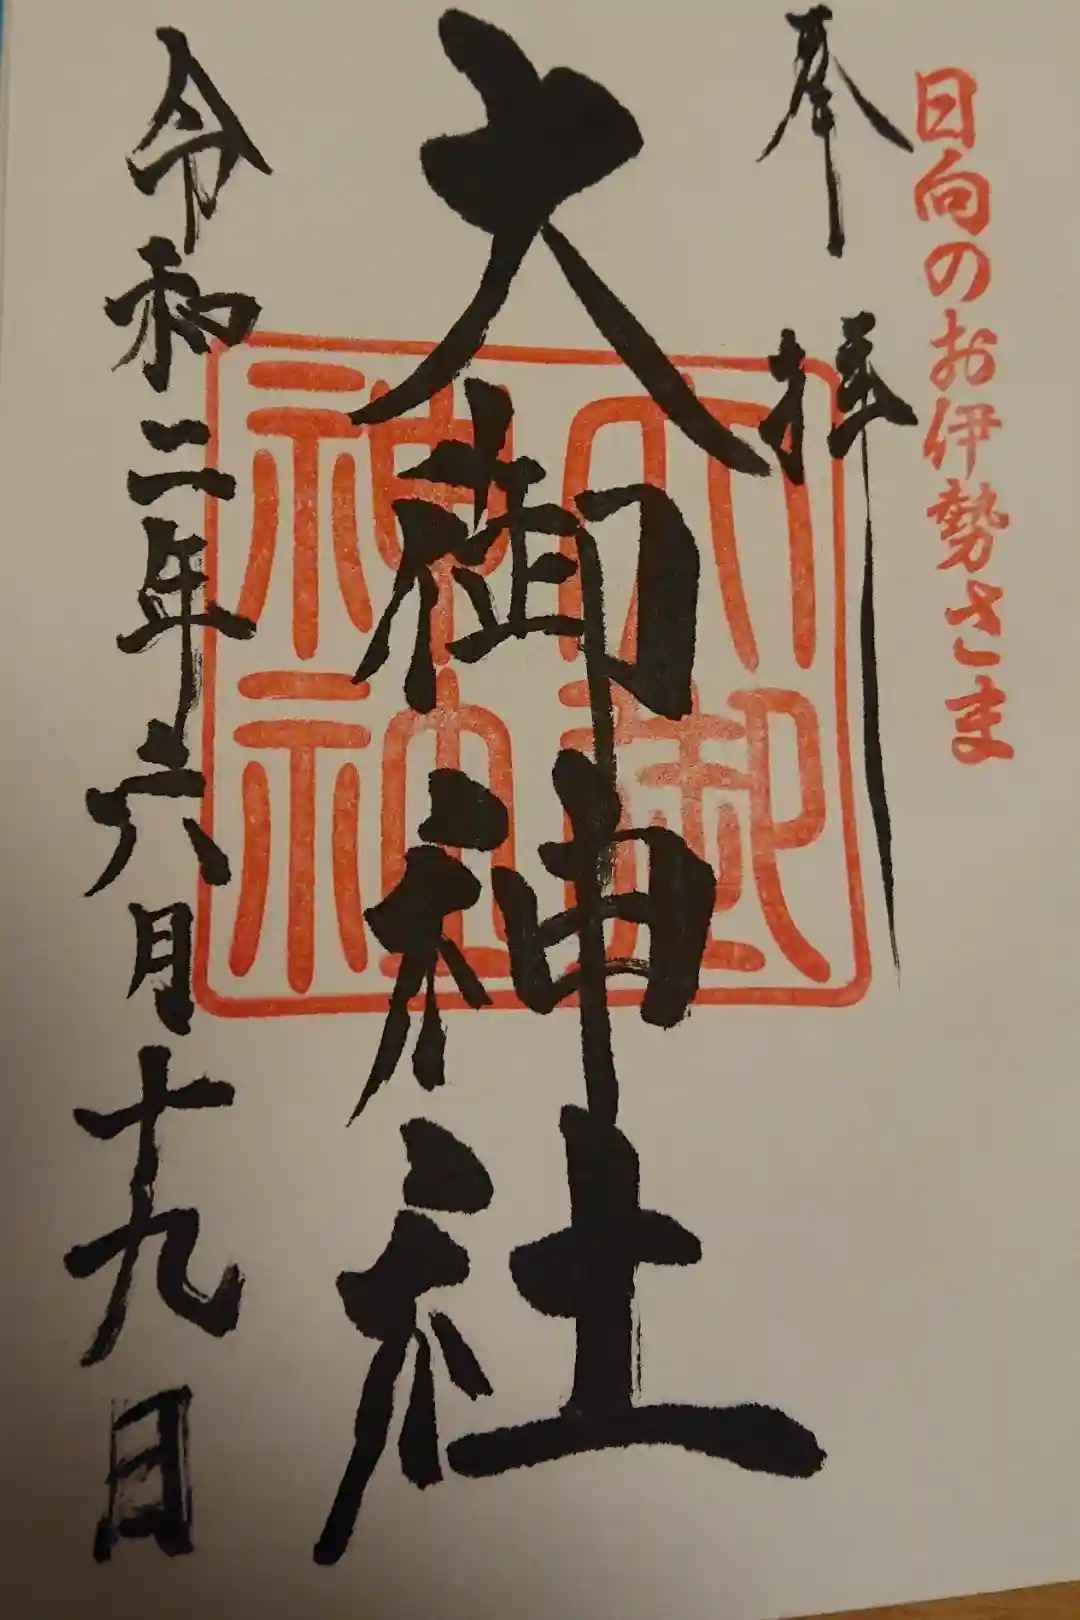 日向のお伊勢さま
奉拝
大御神社
大御
神社
令和二年六月十九日